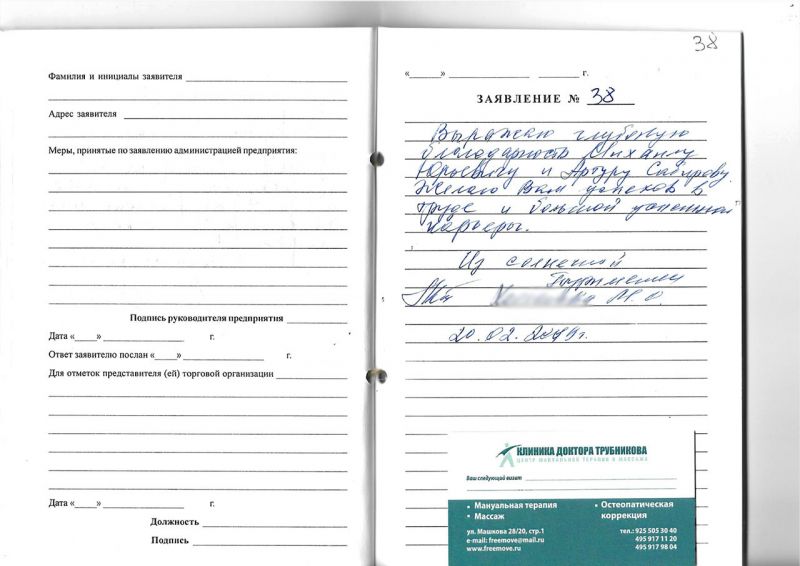 Фамилия и инициалы заявителя
Адрес заявителя
Меры, принятые по заявлению администрацией предприятия:
Подпись руководителя предприятия
Дата «____» г.
Ответ заявителю послан «____» г.
Для отметок представителя (ей) торговой организации
Дата «____» г.
Должность
Подпись
38
«____» г.
ЗАЯВЛЕНИЕ № 38
Выражаю глубокую
благодарность Михаилу
Юрьевичу и Артуру Сабирову.
Желаю Вам успехов в
труде и большой успешной
карьеры.
Из солнечной
Туркмении
М.О.
20.02.2019г.
КЛИНИКА ДОКТОРА ТРУБНИКОВА
ЦЕНТР МАНУАЛЬНОЙ ТЕРАПИИ И МАССАЖА
Ваш следующий визит
• Мануальная терапия
• Массаж
• Остеопатическая
коррекция
ул. Машкова 28/20, стр.1
e-mail: freemove@mail.ru
www.freemove.ru
тел.: 925 505 30 40
495 917 11 20
495 917 98 04